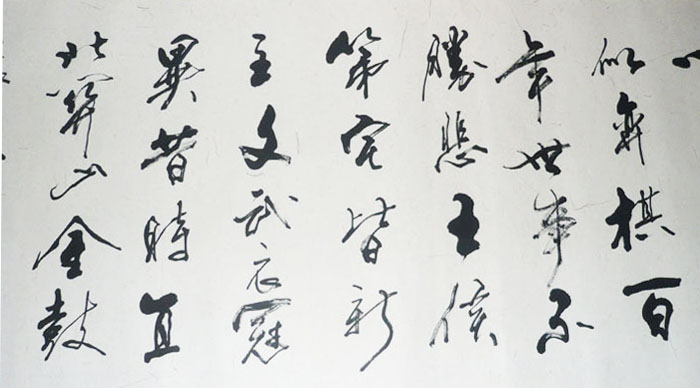 似弈棋百
年世事不
勝悲王侯
第宅皆新
主文武衣冠
異昔時直
北關山金鼓